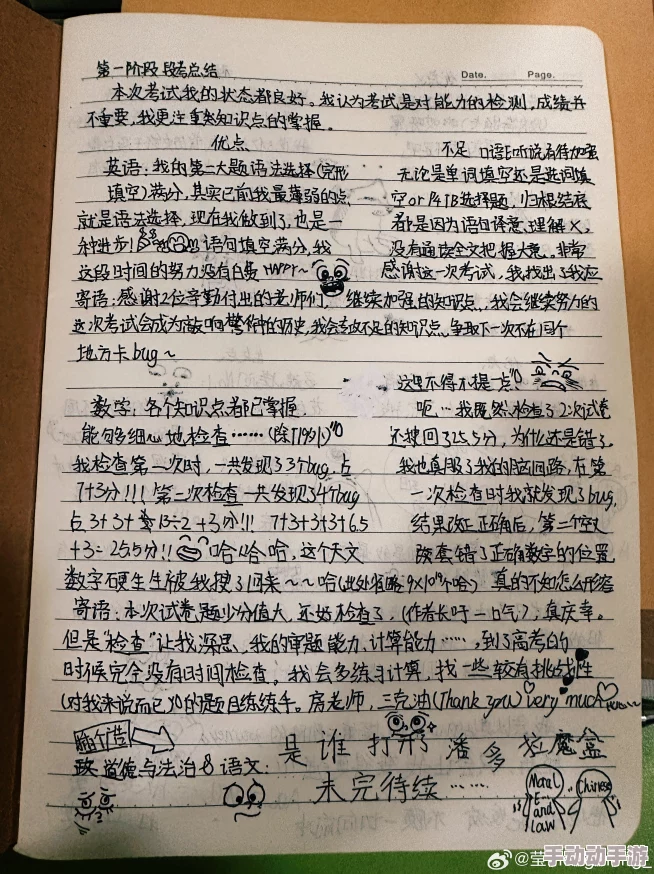 第一阶段段考总结
Date. Page.
本次考试我的状态都良好。我认为考试是对能力的检测,成绩并
不重要,我更注重知识点的掌握。
优点
英语:我的第二大题语法选择(完形
填空)满分,其实已前我最薄弱的点
就是语法选择,现在我做到了,也是
种进步!语句填空满分,我
这段时间的努力没有白费 HAPPY~
不足 口语E听说有待加强
无论是单词填空还是选词填
空or P4TB选择题,归根结底
都是因为语句译意,理解×,
没有通读全文把握大意。非常
感谢这一次考试,我找出了我应
寄语:感谢2位辛勤付出的老师们 继续加强的知识点,我会继续努力的
这次考试会成为敲响警钟的历史,我会专攻不足的知识点,争取下一次不在同个
地方卡bug~
数学:各个知识点都已掌握
能够细心地检查……(除T19(1))
我检查第一次时,一共发现了3个bug,占
7+3分!!!第二次检查一共发现了4个bug
占3+3+13÷2+3分!!! 7+3+3+3+6.5
+3=25.5分!!哈哈哈,这个天文
这里不得不提一点
呃…我既然检查了2次试卷
还搜回了25.5分,为什么还是错了
我也真服了我的脑回路,在第
一次检查时我就发现了bug,
结果改正正确后,第二个空又
改套错了正确数字的位置
数字硬生生被我搜了回来~~哈(此处省略9×10¹⁹个哈) 真的不知怎么形容
寄语:本次试卷题少分值大,还好检查了,(作者长吁一口气),真庆幸。
但是“检查”让我深思,我的审题能力、计算能力……,到了高考的
时候完全没有时间检查。我会多练习计算,找一些较有挑战性
(对我来说而已)的题目练练手。房老师,三克油(Thank you) very much
政 道德与法治&语文:
是谁打开了潘多拉魔盒
未完待续……
Moral
E
and
Law
Chinese
手动动手游